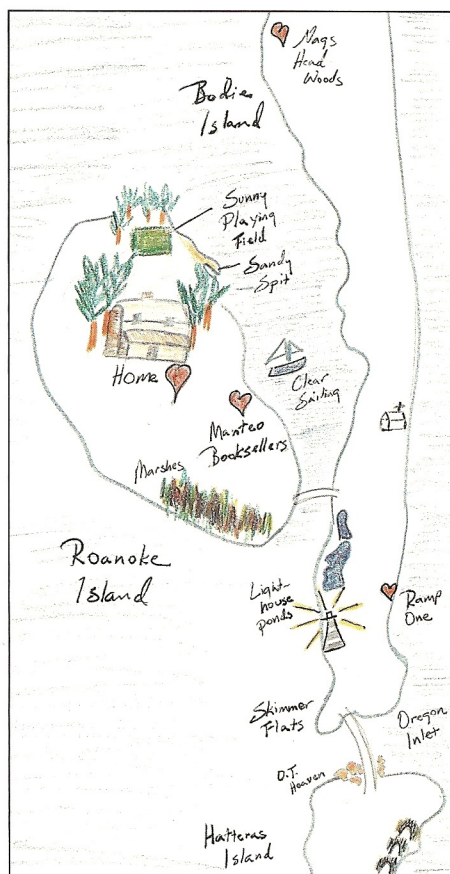 Nags
Head
Woods
Bodie
Island
Sunny
Playing
Field
Sandy
Spit
Home
Clear
Sailing
Manteo
Booksellers
Marshes
Roanoke
Island
Light-
house
ponds
Ramp
One
Skimmer
Flats
Oregon
Inlet
O.T.
Heaven
Hatteras
Island